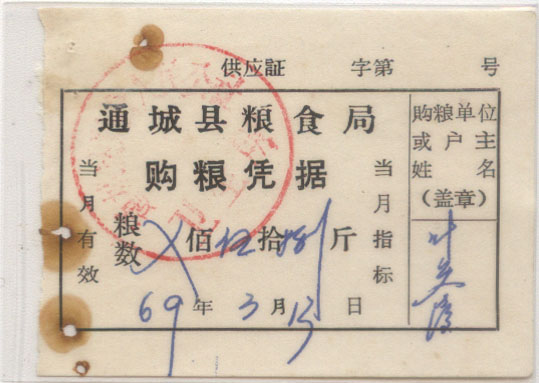 供应証 字第 号
通城县粮食局
购粮凭据
当月有效
粮数 佰伍拾捌斤
当月指标
69年3月13日
购粮单位
或户主
姓名
(盖章)
叶